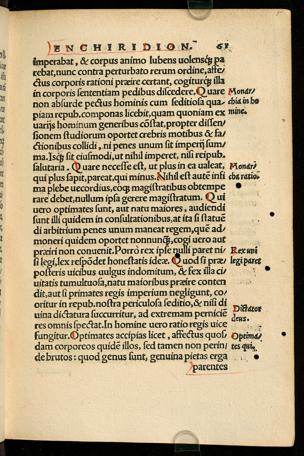 ENCHIRIDION. 61
imperabat, & corpus animo lubens uolensq́; pa
rebat, nunc contra perturbato rerum ordine, affe/
ctus corporis rationi præire certant, cogiturq́; illa
in corporis sententiam pedibus discedere. Quare
non absurde pectus hominis cum seditiosa qua/
piam repub. componas licebit, quam quoniam ex
uarijs hominum generibus cōstat, propter dissen/
sionem studiorum oportet crebris motibus & fa/
ctionibus collidi, ni penes unum sit imperij sum/
ma. Isq́; sit eiusmodi, ut nihil imperet, nisi reipub.
salutaria. Quare necesse est, ut plus in ea ualeat,
qui plus sapit, pareat, qui minus. Nihil est autē infi
ma plebe uecordius, eoq́; magistratibus obtempe
rare debet, nullum ipsa gerere magistratum. Qui
uero optimates sunt, aut natu maiores, audiendi
sunt illi quidem in consultationibus, at ita si statuē
di arbitrium penes unum maneat regem, quē ad/
moneri quidem oportet nonnunq̄, cogi uero aut
præiri non conuenit. Porrò rex ipse nulli paret ni/
si legi, lex respōdet honestatis ideæ. Quod si præ/
posteris uicibus uulgus indomitum, & fex illa ci/
uitatis tumultuosa, natu maioribus præire conten
dit, aut si primates regis imperium negligunt, co/
oritur in repub. nostra periculosa seditio, & nisi di
uina dictatura succurritur, ad extremam pernicie
res omnis spectat. In homine uero ratio regis uice
fungitur. Optimates accipias licet, affectus quos/
dam corporeos quidē illos, sed tamen non perin/
de brutos: quod genus sunt, genuina pietas erga
parentes
Monar/
chia in ho
mine.
Monar/
chia ratio.
Rex uni
legi paret
Dictator
deus.
Optima/
tes qui.